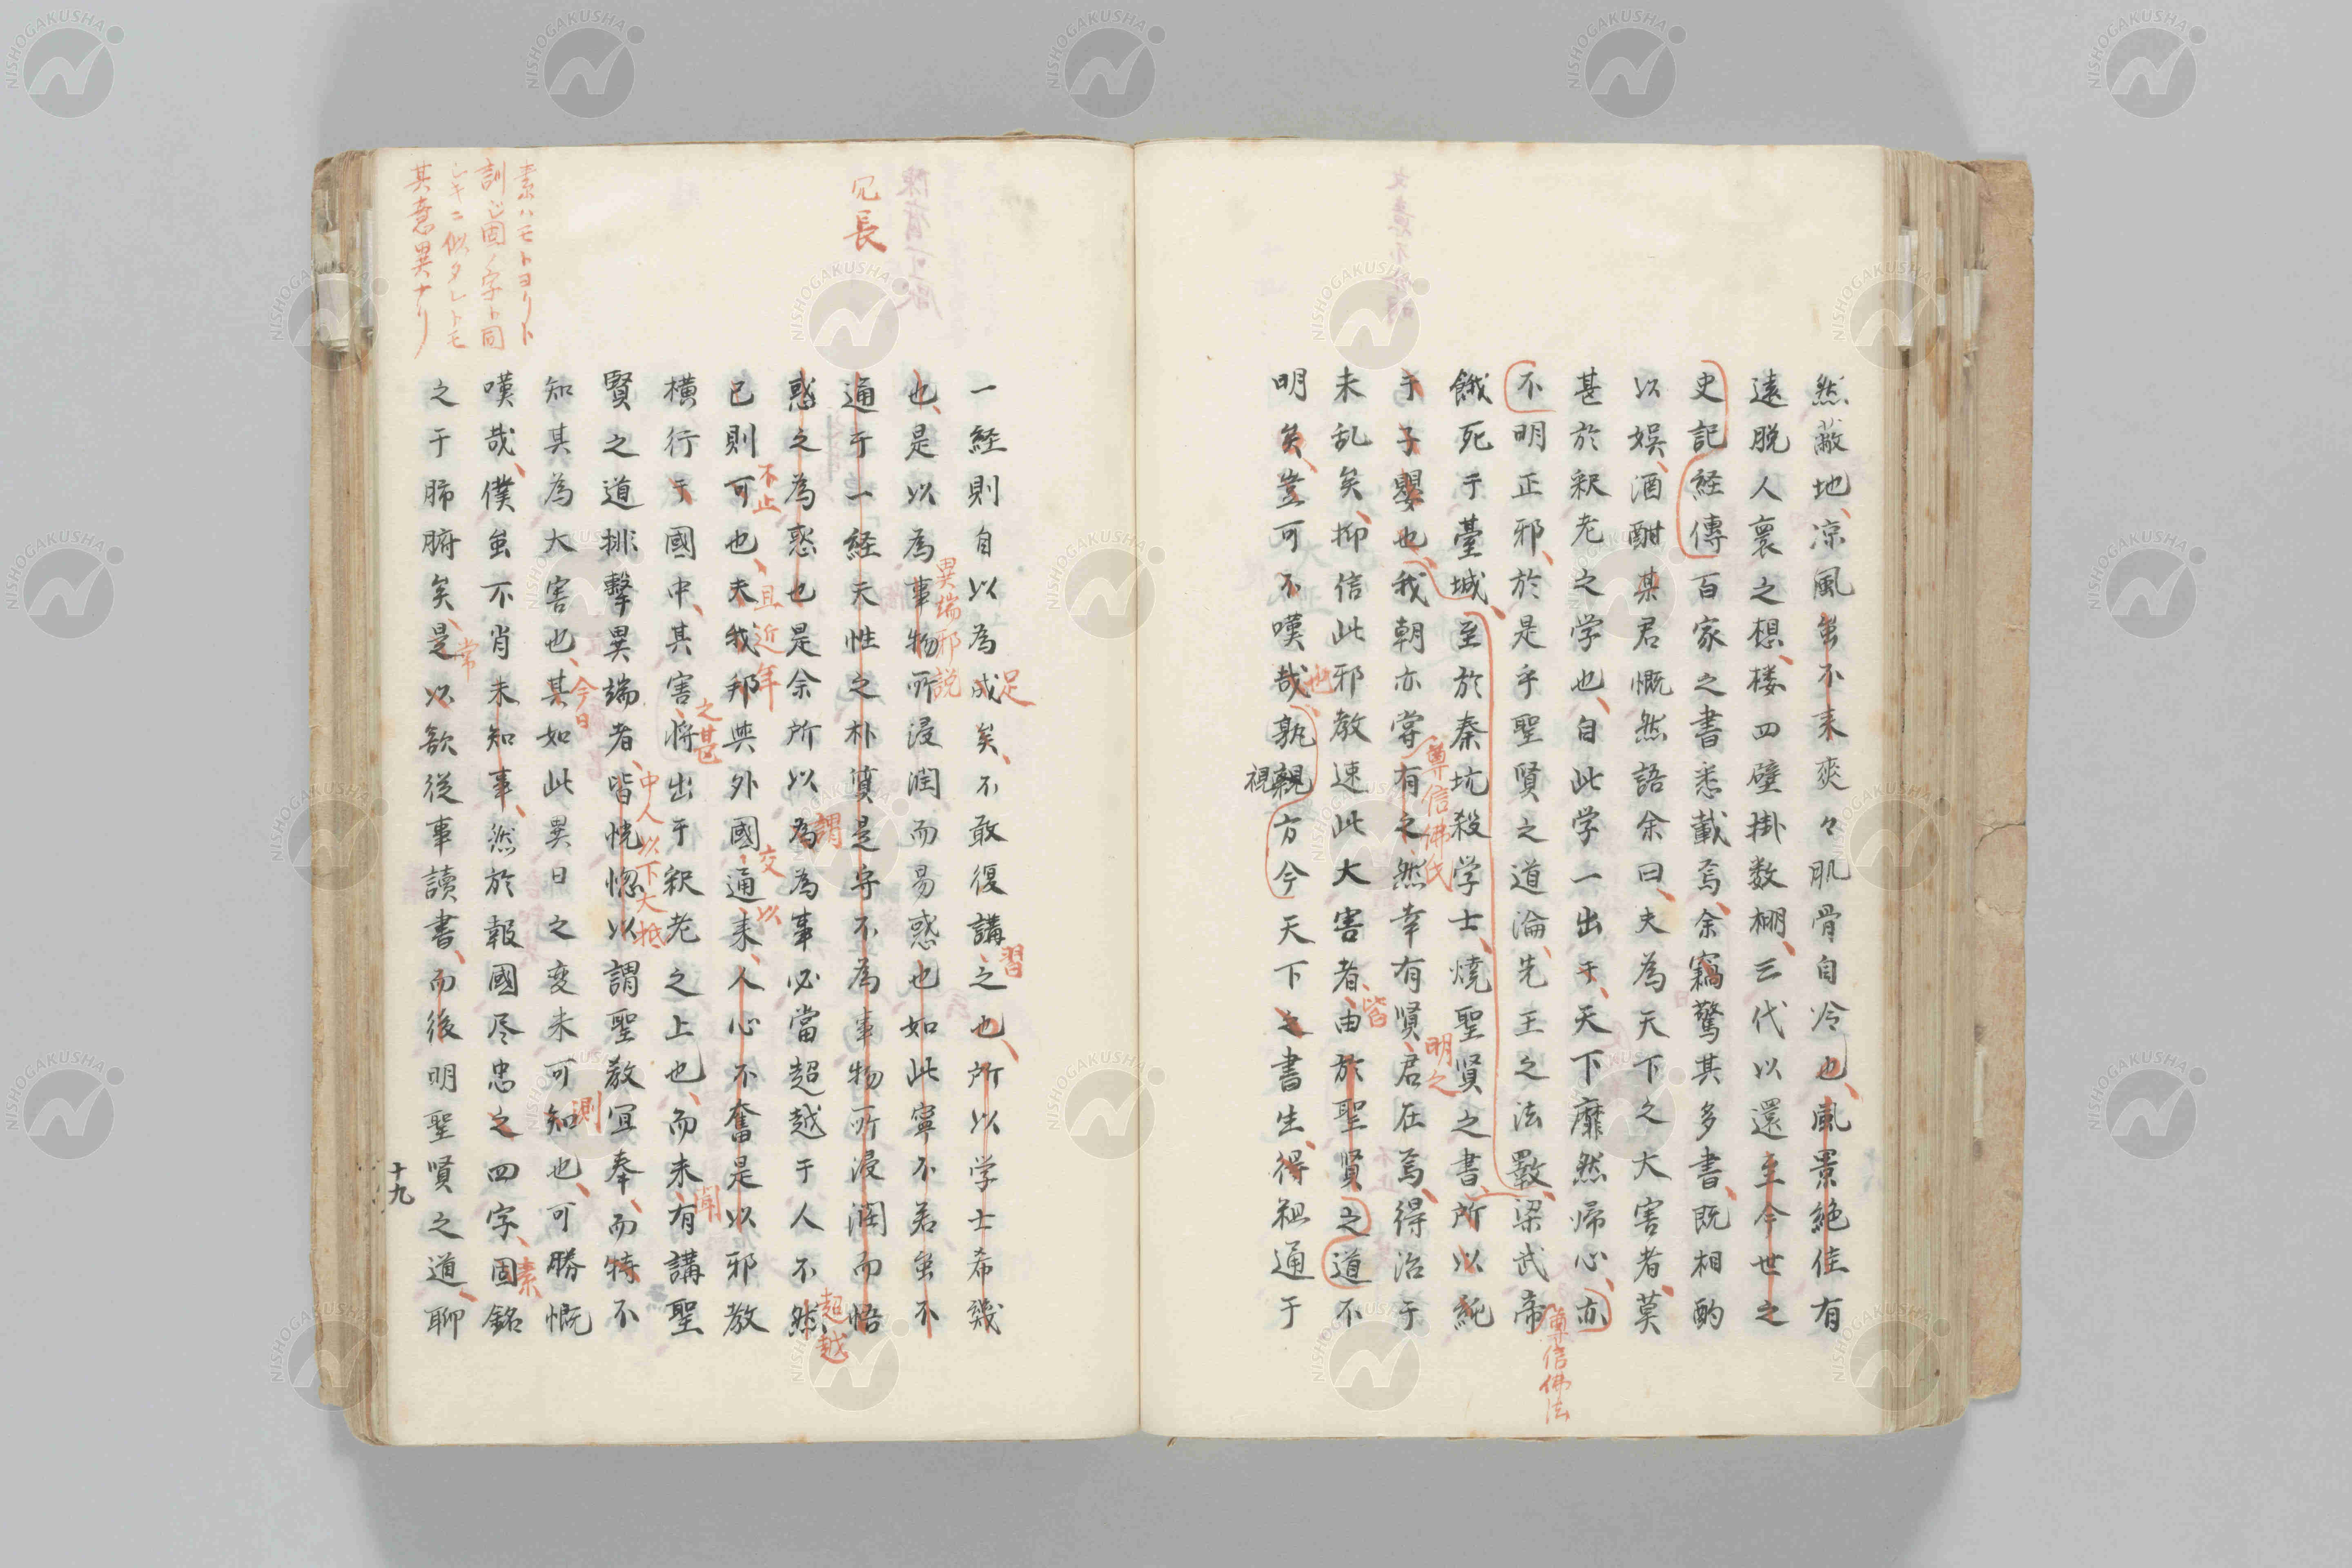 然蔽地凉風虽不来爽々肌骨自冷也風景絶佳有
遠脱人寰之想楼四壁掛数棚三代以還至今世之
史記経傳百家之書悉載焉余竊驚其多書既相酌
以娯酒酣某君慨然語余曰夫為天下之大害者莫
甚於釈老之学也自此学一出于天下靡然帰心亦
尊信佛法
不明正邪於是乎聖賢之道淪先王之法斁梁武帝
餓死于臺城至於秦坑殺学士焼聖賢之書所以純
尊信佛氏
明之
于子嬰也我朝亦嘗有之然幸有賢君在焉得治于
皆
未乱矣抑信此邪教速此大害者由於聖賢之道不
也
明矣豈可不嘆哉孰親方今天下之書生得粗通于
視
足
習
一経則自以為成矣不敢復講之也所以学士希幾
異端邪説
也是以為事物所浸潤而易惑也如此寧不若虽不
冗長
通于一経天性之朴質是守不為事物所浸潤而悟
謂
超越
惑之為惑也是余所以為為事必當超越于人不然
不止
且近年
交
以
已則可也夫我邦與外國通来人心不奮是以邪教
之甚
聞
横行于國中其害将出于釈老之上也而未有講聖
中人以下大抵
賢之道排擊異端者皆恍惚以謂聖教冝奉而特不
今日
測
知其為大害也其如此異日之変未可知也可勝慨
素
嘆哉僕虽不肖未知事然於報國尽忠之四字固銘
常
之于肺腑矣是以欲従事讀書而後明聖賢之道聊
素ハモトヨリト
訓ジ固ノ字ト同
シキニ似タレトモ
其意異ナリ
十九